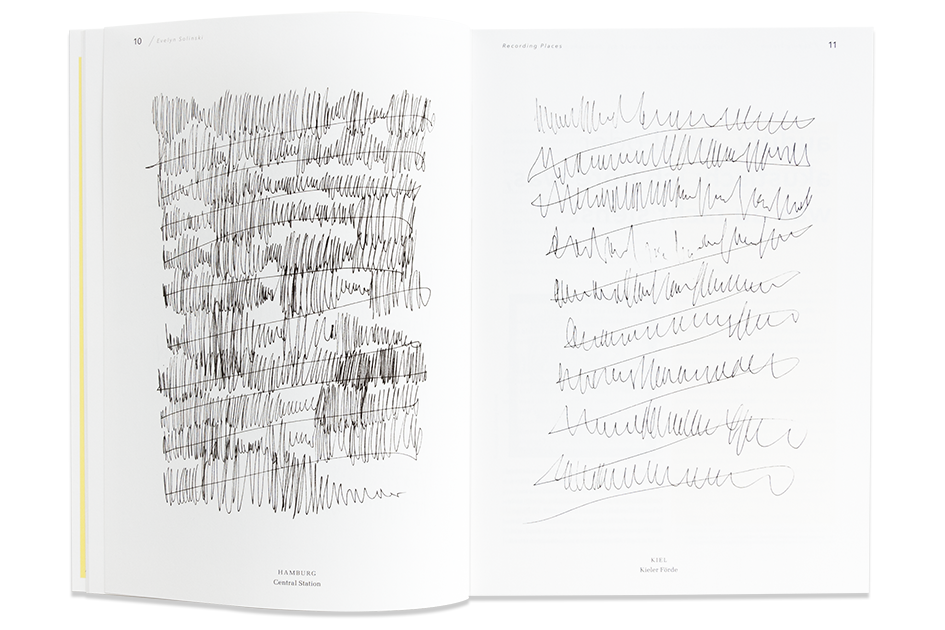 10 / Evelyn Solinski
HAMBURG
Central Station
Recording Places 11
KIEL
Kieler Förde